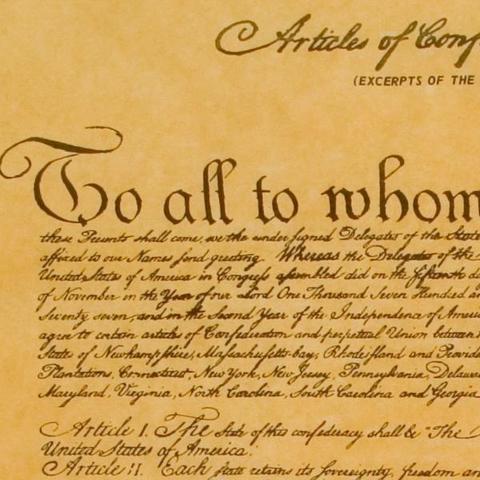 Articles of Conf
(EXCERPTS OF THE
To all to whom
these Presents shall come, we the under signed Delegates of the State
affixed to our Names send greeting. Whereas the Delegates of the
United States of America in Congress assembled did on the fifteenth d
of November in the Year of our Lord One Thousand Seven Hundred an
Seventy seven, and in the Second Year of the Independence of Americ
agree to certain articles of Confederation and perpetual Union between
State of Newhampshire, Massachusetts-bay, Rhodeisland and Provide
Plantations, Connecticut, New York, New Jersey, Pennsylvania, Delawa
Maryland, Virginia, North Carolina, South Carolina and Georgia
Article I. The State of this confederacy shall be "The
United States of America."
Article II. Each state retains its sovereignty, freedom an